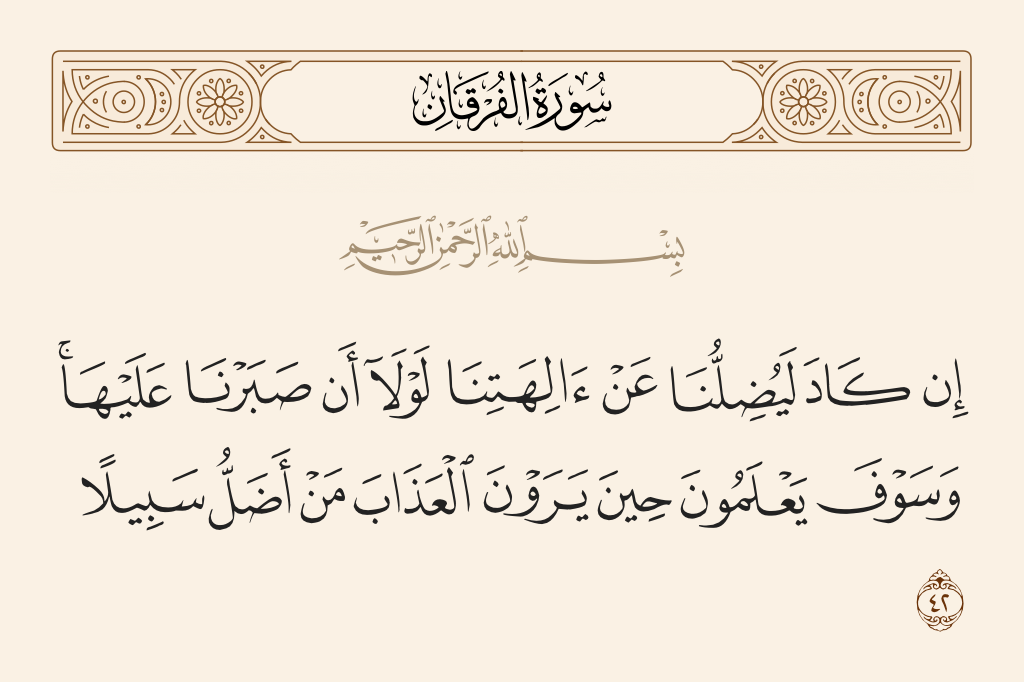 سُورَةُ الفُرْقَانِ
بِسْمِ ٱللَّهِ ٱلرَّحْمَٰنِ ٱلرَّحِيمِ
إِن كَادَ لَيُضِلُّنَا عَنْ ءَالِهَتِنَا لَوْلَآ أَن صَبَرْنَا عَلَيْهَا ۚ
وَسَوْفَ يَعْلَمُونَ حِينَ يَرَوْنَ ٱلْعَذَابَ مَنْ أَضَلُّ سَبِيلًا
٤٢